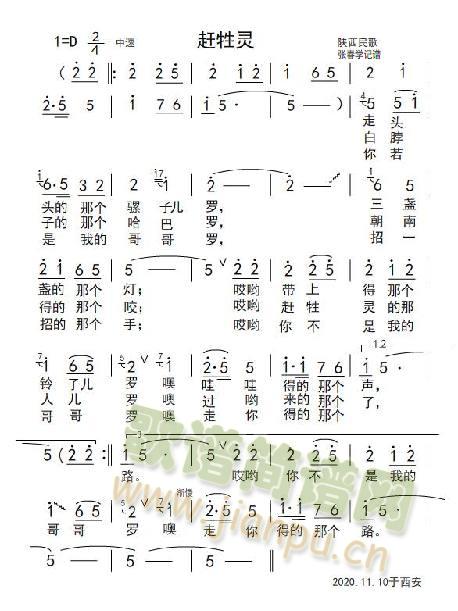 1=D 2/4 中速 赶牲灵 陕西民歌
张春学记谱
( 2 2 ‖: 2 2 5 | 2 2 | 1 6 5 | 2 1 |
2·5 5 | 1 7 6 | 1 5· | 5· ) | 5 5 1 |
走 头
白 脖
你 若
6·5 3 2 | 2 1 | 2 — | 2 — | 6 5 |
头的 那个 骡 子儿 罗, 三 盏
子的 那个 哈 巴 罗, 朝 南
是 我的 哥 哥 罗, 招 一
2 1 6 5 | 5 — | 5 ∨ 2 2 | 2 5 | 2 2 2 |
盏的 那个 灯; 哎哟 带 上 得 那个
得的 那个 咬; 哎哟 赶 牲 灵 的那
招的 那个 手; 哎哟 你 不 是 我的
1 6 5 | 2 ∨ 1 | 2·5 5 | 1·1 7 6 | 1 5· |
1.2
铃 了儿 罗 噢 哇 哇 得的 那个 声,
人 儿 罗 噢 过 来的 那个 了,
哥 哥 罗 噢 走 你 得的 那个
3
5 ( 2 2 :‖ 1 5· | 5 2 2 | 2 5 | 2 2 2 |
路。 哎哟 你 不 是 我的
渐慢
1 6 5 | 2 ∨ 1 | 2·5 5 | 1·1 7 6 | 1 5· |
哥 哥 罗 噢 走 你 得的 那个 路。
5 — | 5 — | 5 — | 5 5 ‖
2020.11.10于西安
歌谱简谱网
www.jianpu.cn